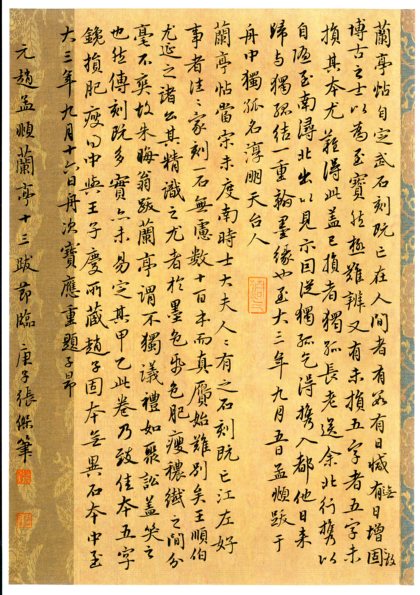 蘭亭帖自定武石刻既亡在人間者有數有日減有日增固
無
故
博古之士以為至寶然極難辨又有未損五字者五字未
損其本尤難得此蓋已損者獨孤長老送余北行攜以
自隨至南潯北出以見示因從獨孤乞得攜入都他日來
歸與獨孤結一重翰墨緣也至大三年九月五日孟頫跋于
舟中獨孤名淳明天台人
蘭亭帖當宋未度南時士大夫人々有之石刻既亡江左好
事者往々家刻一石無慮數十百本而真贗始難別矣王順伯
尤延之諸公其精識之尤者於墨色紙色肥瘦穠纖之間分
毫不爽故朱晦翁跋蘭亭謂不獨議禮如聚訟蓋笑之
也然傳刻既多實亦未易定其甲乙此卷乃致佳本五字
鑱損肥瘦得中與王子慶所藏趙子固本無異石本中至
大三年九月十六日舟次寶應重題子昂
元趙孟頫蘭亭十三跋節臨 庚子張傑筆